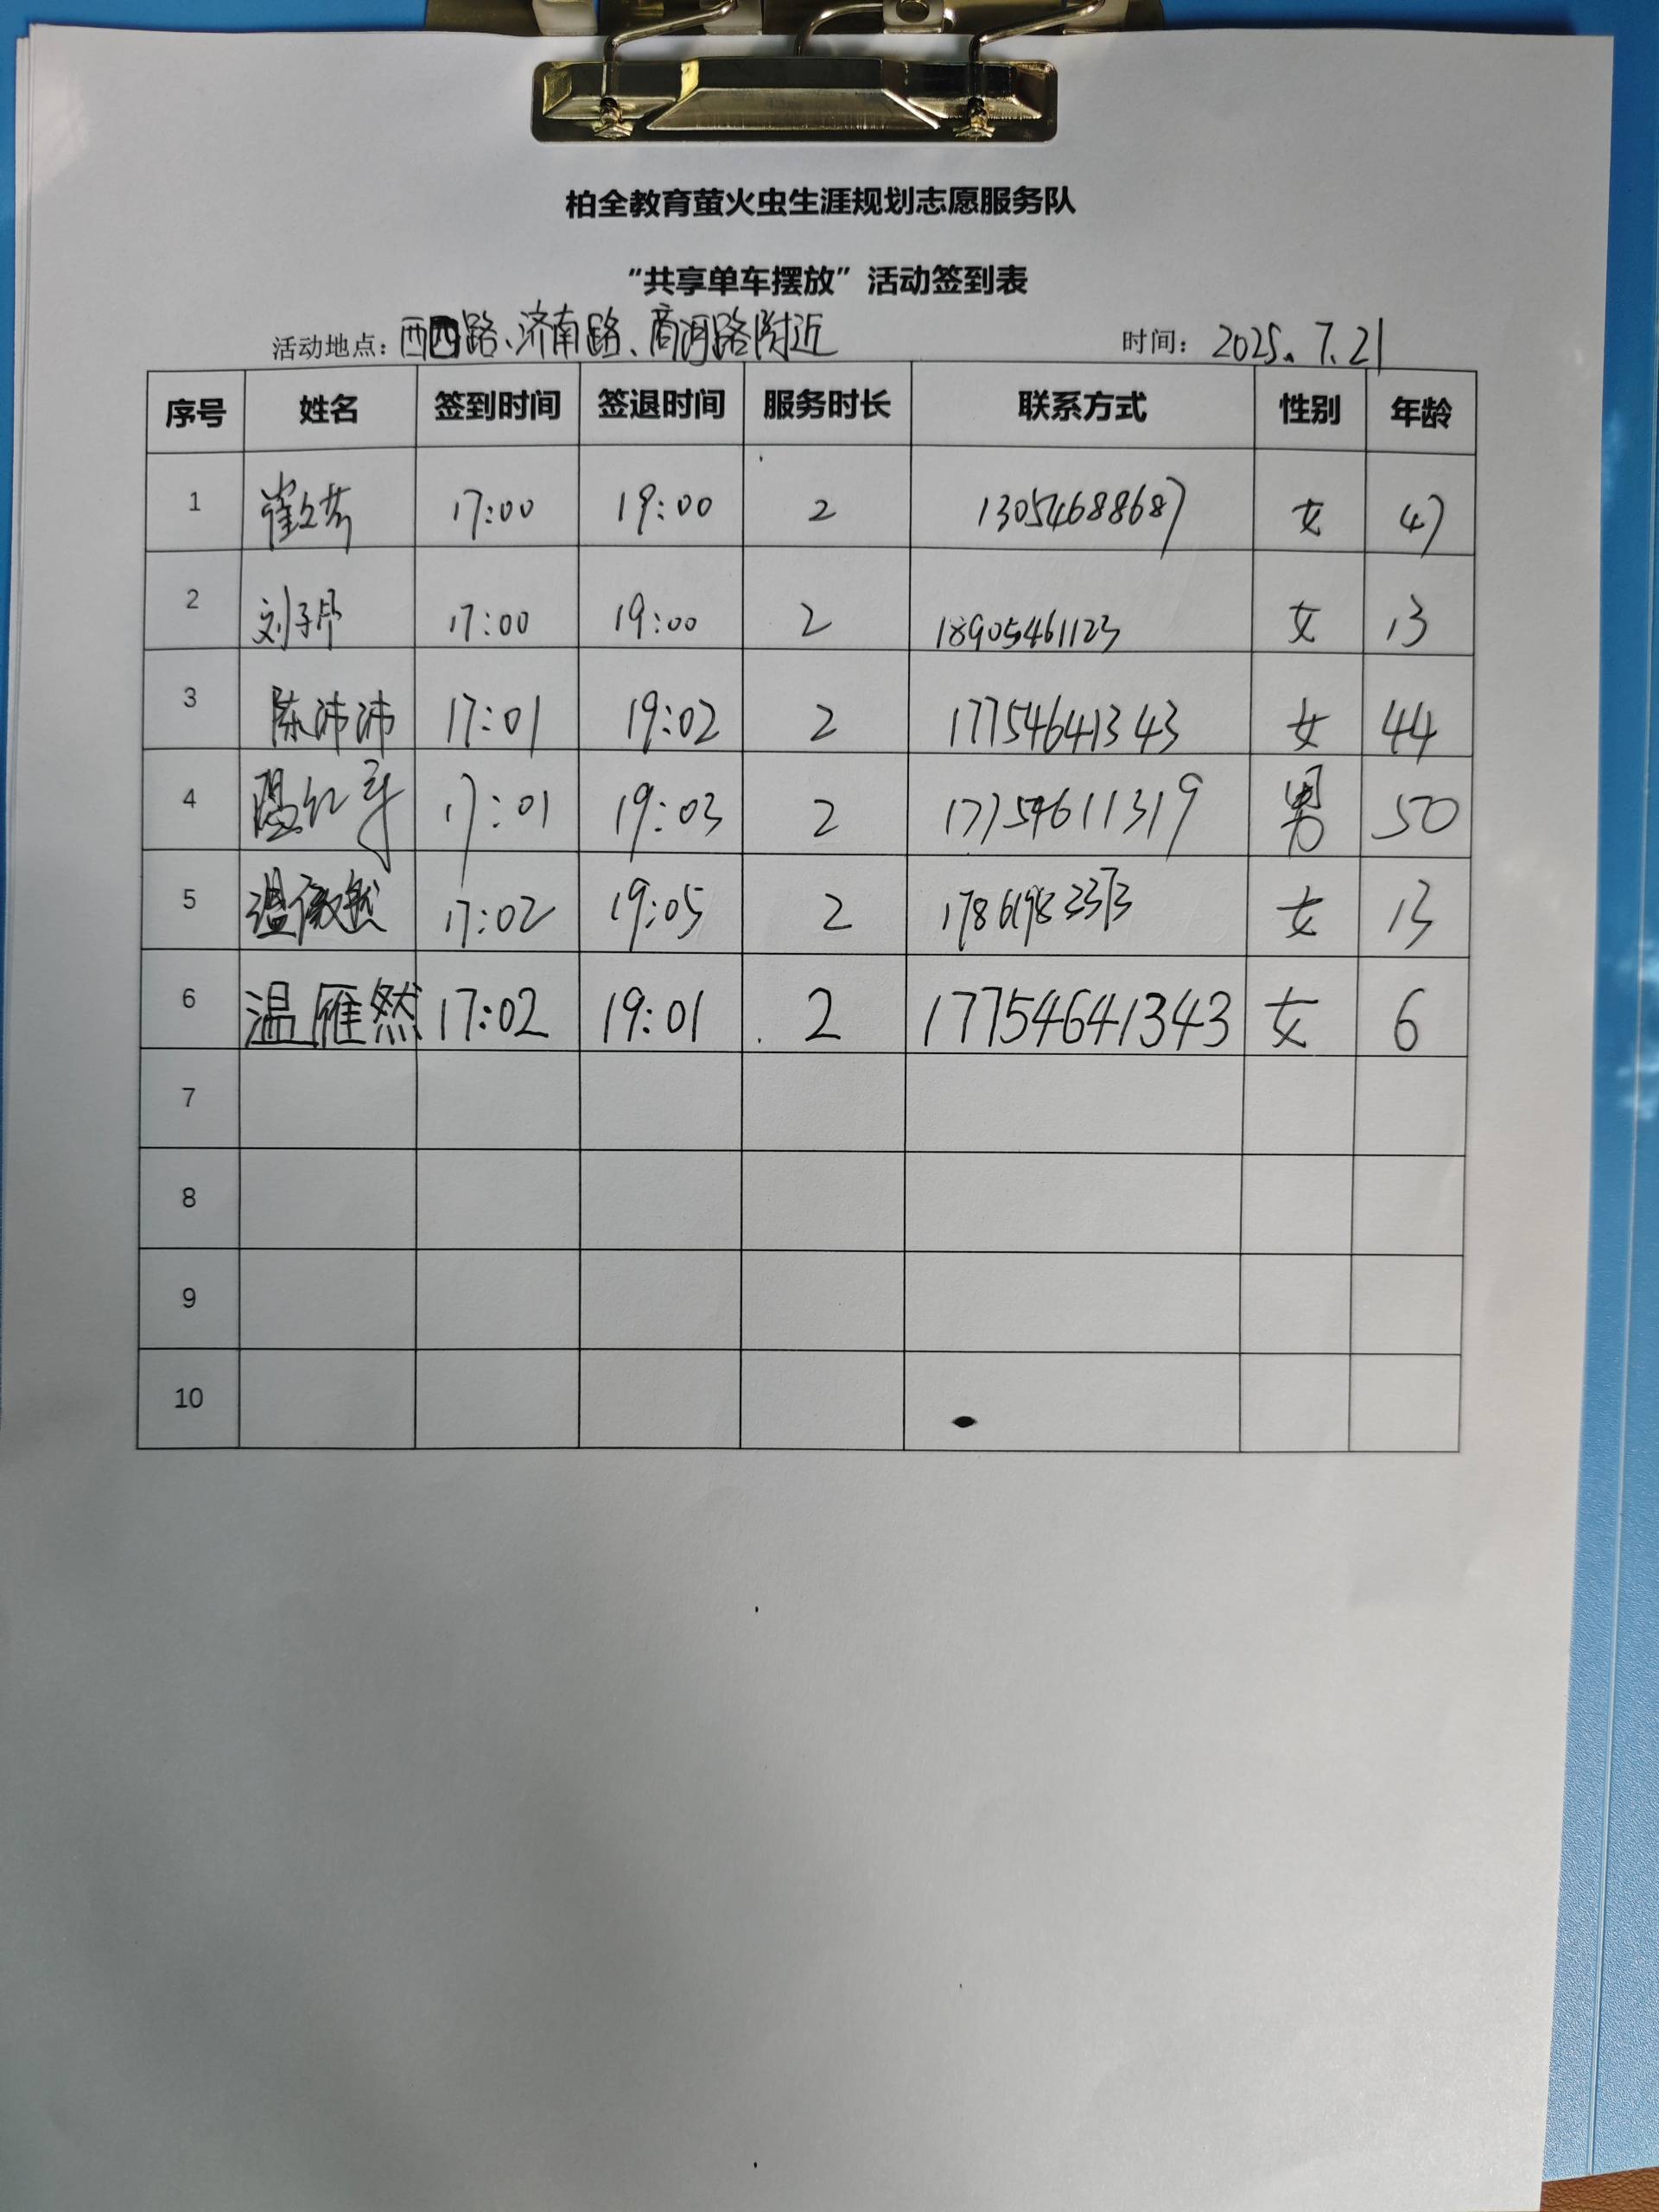 柏全教育萤火虫生涯规划志愿服务队
“共享单车摆放”活动签到表
活动地点：西四路、济南路、商河路附近 时间：2025.7.21
序号 姓名 签到时间 签退时间 服务时长 联系方式 性别 年龄
1 崔 17:00 19:00 2 13054688687 女 47
2 刘子 17:00 19:00 2 18905461123 女 13
3 陈沛沛 17:01 19:02 2 17754641343 女 44
4 温红军 17:01 19:03 2 17754611319 男 50
5 温薇然 17:02 19:05 2 女 13
6 温雁然 17:02 19:01 2 17754641343 女 6
7
8
9
10